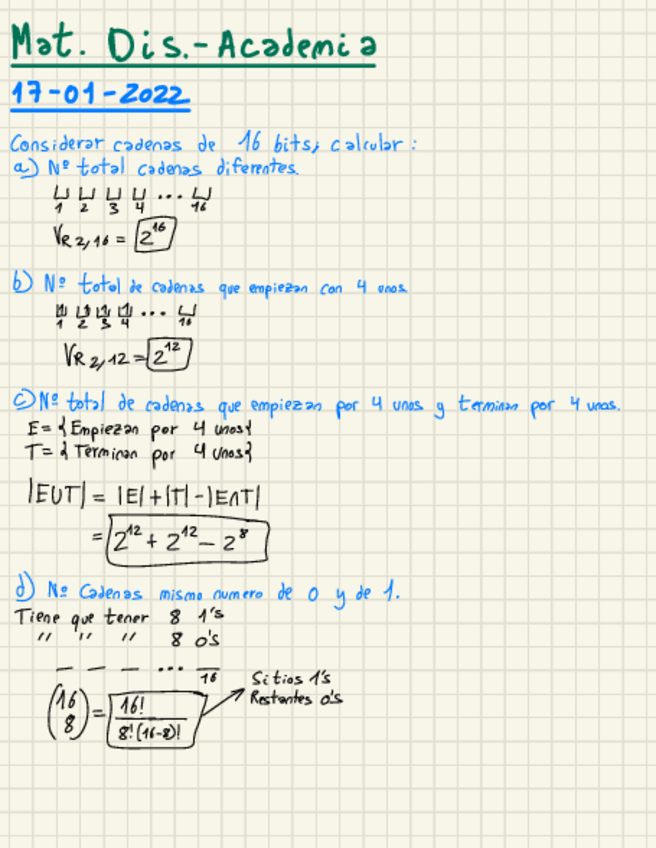 Mat. Dis.-Academia
17-01-2022
Considerar cadenas de 16 bits, calcular:
a) Nº total cadenas diferentes.
1 2 3 4 ... 16
VR 2,16 = 2^16
b) Nº total de cadenas que empiezan con 4 unos
1 1 1 1 ...
1 2 3 4 16
VR 2,12 = 2^12
c) Nº total de cadenas que empiezan por 4 unos y terminan por 4 unos.
E= {Empiezan por 4 unos}
T= {Terminan por 4 unos}
|E∪T| = |E|+|T|-|E∩T|
= 2^12 + 2^12 - 2^8
d) Nº Cadenas mismo numero de 0 y de 1.
Tiene que tener 8 1's
" " " 8 0's
_ _ _ ... _
16
Sitios 1's
Restantes 0's
(16 8) = 16! / 8!(16-8)!